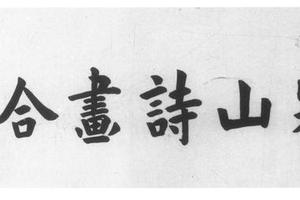 山詩畫合